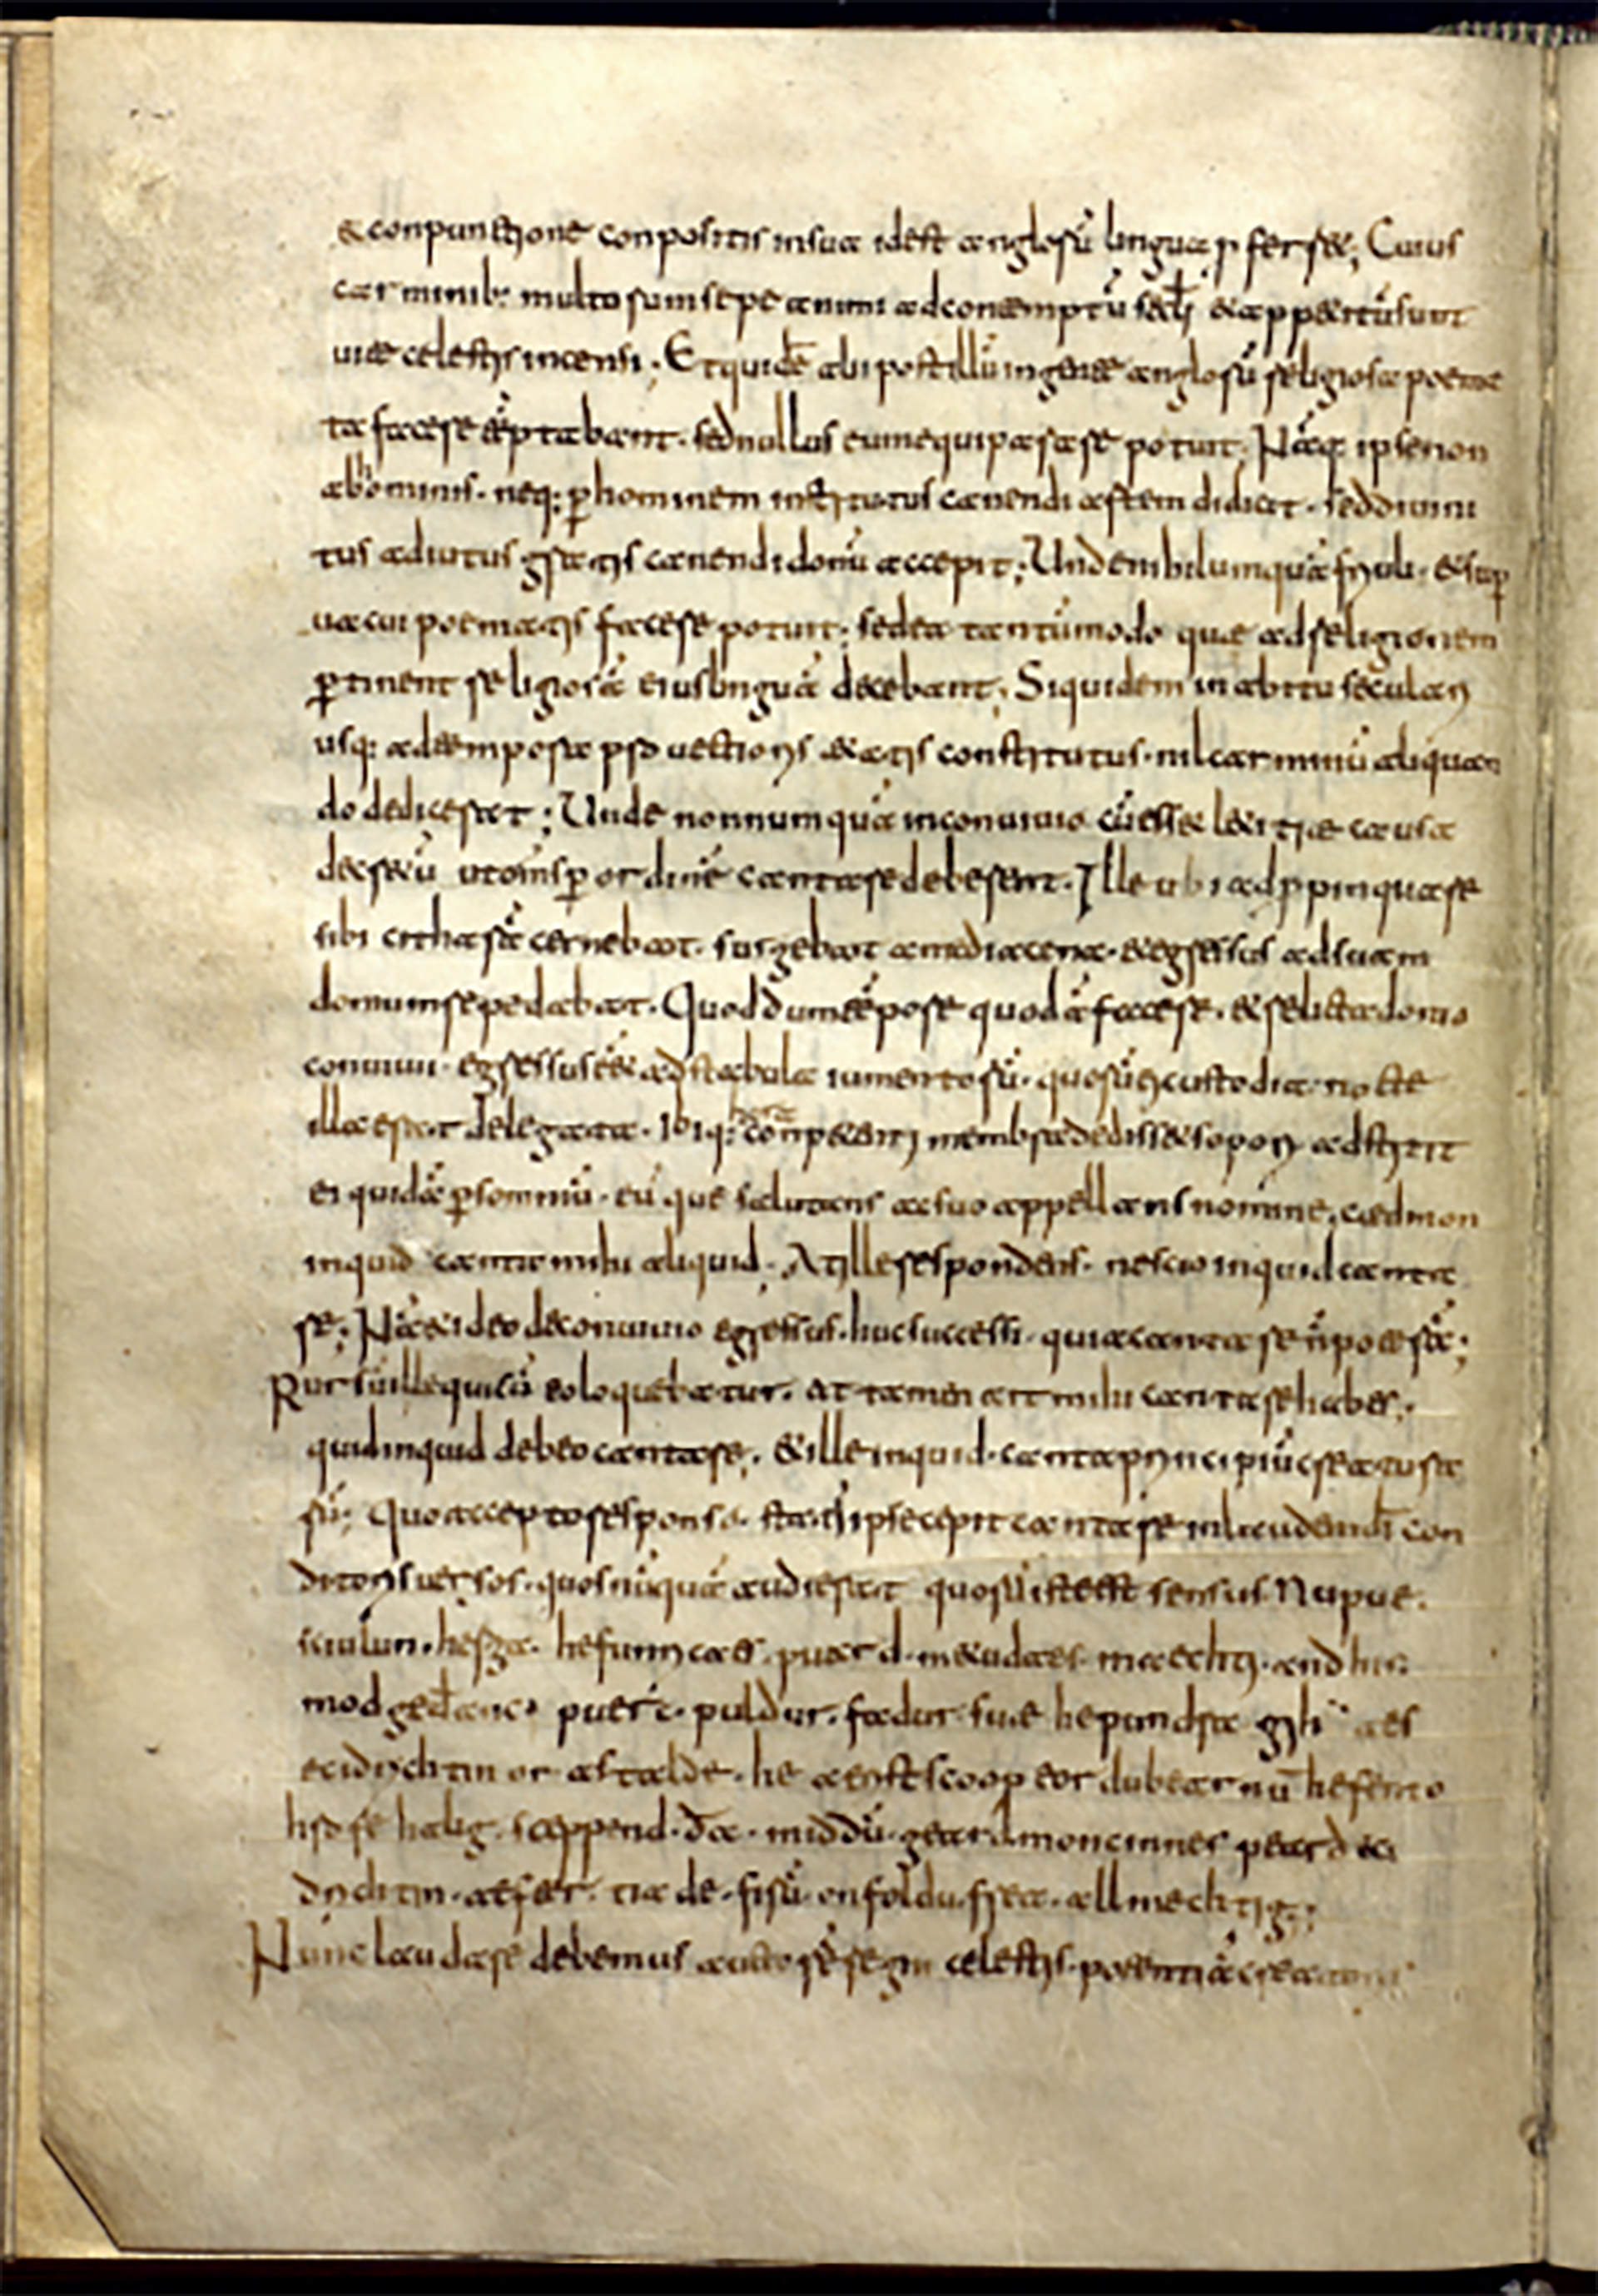 & conpunctione conpositis in sua id est anglorū lingua pferr&; Cuius
carminib: multorum sepe animi ad contemptū sęcłi & app&itū sunt
uitae celestis incensi; Et quidē alii post illū in gente anglorū religiosa poema
ta facere tēptabant. sed nullus eum equiparare potuit; Nāq: ipse non
ab hominis. neq: p hominem institutus canendi artem didicit. sed diuini
tus adiutus gratis canendi donū accepit; Unde nihil umquā friuoli. & sup
uacui poematis facere potuit; sed ea tantūmodo quae ad religionem
ptinent religiosā eius linguā decebant; Siquidem in abitu seculari
usq: ad tempora prouectioris &atis constitutus. nil carminū aliquan
do dedicerat; Unde nonnumquā in conuiuio cū ess& l&itiae causa
decr&ū ut om̄s p ordinē cantare deberent. Ille ubi adppinquare
sibi citharā cernebat. surgebat a media cena. & egressus ad suam
domum repedabat. Quod dum tēpore quodā facer&. & relicta domo
conuiui. egressus ēēt ad stabula iumentorū. quorū ei custodia nocte
illa erat delegata. ibiq: hora conpetenti membra dediss& sopori. adstitit
ei quidā p somniū. eū que salutans ac suo appellans nomine; caedmon
inquid canta mihi aliquid; At ille respondens. nescio inquid canta
re; Nā & ideo de conuiuio egressus. huc successi. quia cantare n̄ poterā;
Rursū ille qui cū eo loquebatur. at tamen ait mihi cantare habes;
quid inquid debeo cantare; & ille inquid. canta principiū creatura
rū; Quo accepto responso. statī ipse cepit cantare in laudem dī con
ditoris uersos. quos nūquā audierat quorū iste est sensus Nu pue.
sciulun. herga. hefunricaes. puard. m&udaes. maechti. and his.
mod ged̄anc. puerc. puldur. fadur. sue he pundra gih aes
ecidrichtin or astalde. he aerist scoop eor du bearnū hefen to
hrofe halig. sceppend. d̄a. middū. geard moncinnes peard eci
drichtin. aefter. tia de. firū. on foldu. frea. allmechtig;
Nunc laudare debemus auctorē regni celestis. potentiā creatoris